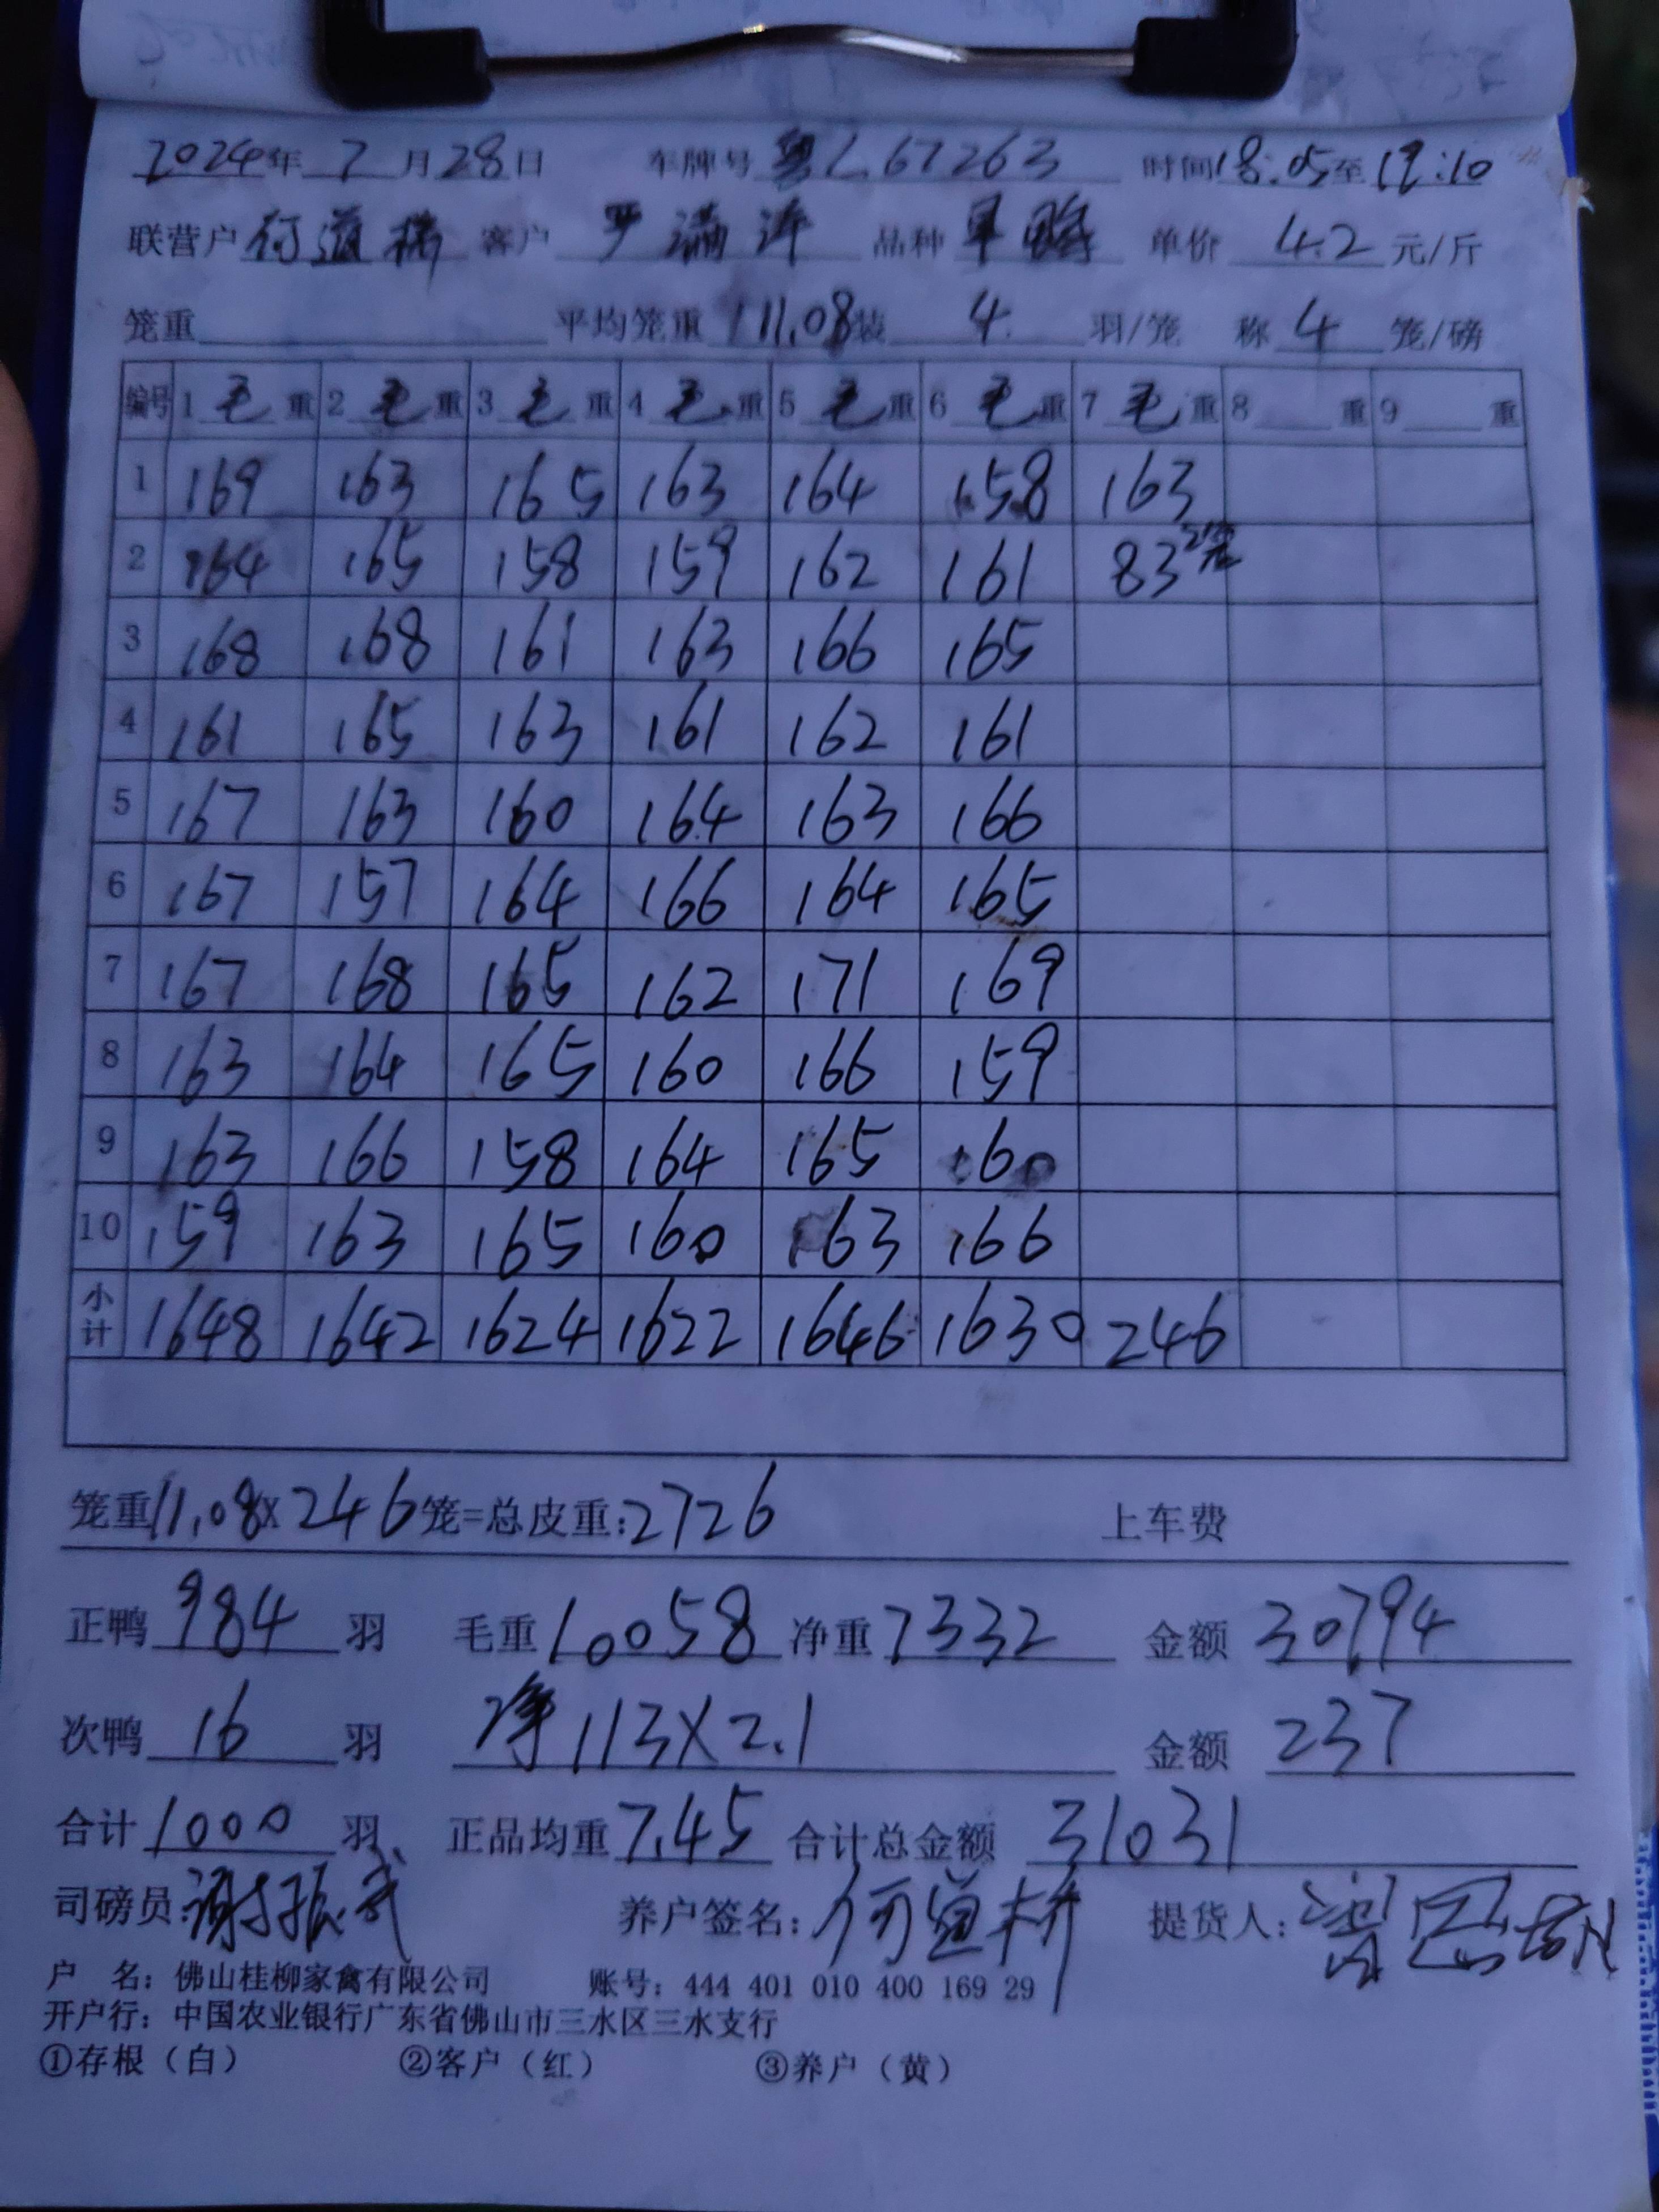 2024年 7 月 28 日 车牌号 粤L67263 时间 18:05 至 19:10
联营户 何道耕 客户 罗满洋 品种 单价 4.2 元/斤
笼重 平均笼重 11.08 装 4 羽/笼 称 4 笼/磅
编号 1 毛 重 2 毛 重 3 毛 重 4 毛 重 5 毛 重 6 毛 重 7 毛 重 8 重 9 重
1 169 163 165 163 164 158 163
2 164 165 158 159 162 161 83 2笼
3 168 168 161 163 166 165
4 161 165 163 161 162 161
5 167 163 160 164 163 166
6 167 157 164 166 164 165
7 167 168 165 162 171 169
8 163 164 165 160 166 159
9 163 166 158 164 165 160
10 159 163 165 160 163 166
小计 1648 1642 1624 1622 1646 1630 246
笼重 11.08 x 246 笼=总皮重: 2726 上车费
正鸭 984 羽 毛重 10058 净重 7332 金额 30794
次鸭 16 羽 净 113 X 2.1 金额 237
合计 1000 羽 正品均重 7.45 合计总金额 31031
司磅员: 谢振武 养户签名: 何道耕 提货人:
户 名: 佛山桂柳家禽有限公司 账号: 444 401 010 400 169 29
开户行: 中国农业银行广东省佛山市三水区三水支行
①存根（白） ②客户（红） ③养户（黄）